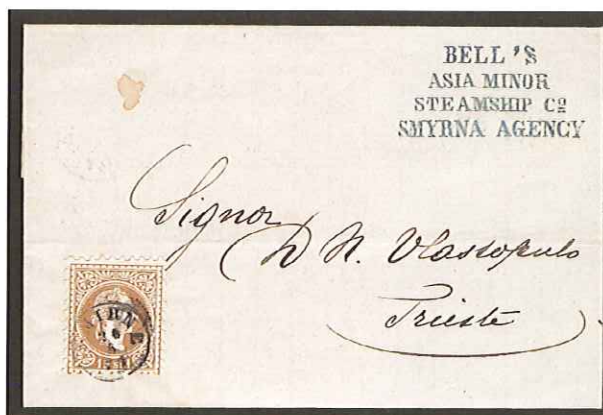 BELL'S
ASIA MINOR
STEAMSHIP Cº
SMYRNA AGENCY
Signor
D N. Vlastopulo
Trieste